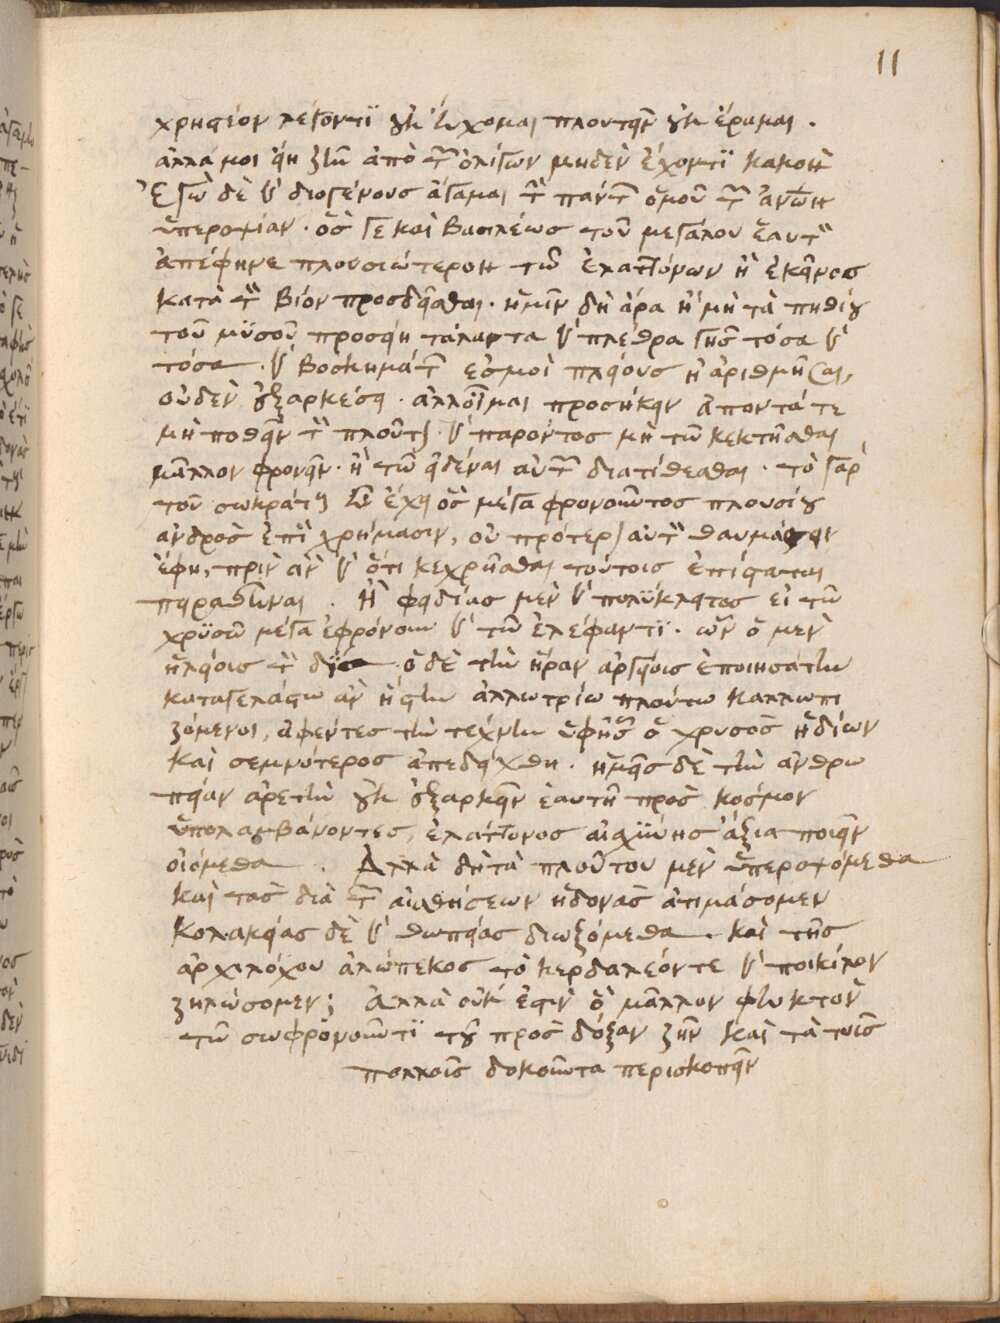 11
χρηστέον λέγοντι οὐκ εὔχομαι πλουτεῖν οὐκ ἔραμαι.
ἀλλά μοι εἴη ζῆν ἀπὸ τῶν ὀλίγων μηδὲν ἔχοντι κακόν
Ἐγὼ δὲ καὶ διογένους ἄγαμαι τὴν πάντων ὁμοῦ τῶν ἀνθρωπίνων
ὑπεροψίαν. ὅς γε καὶ βασιλέως τοῦ μεγάλου ἑαυτὸν
ἀπέφηνε πλουσιώτερον τῷ ἐλαττόνων ἢ ἐκεῖνος
κατὰ τὸν βίον προσδεῖσθαι. ἡμῖν δὴ ἄρα εἰ μὴ τὰ πυθίου
τοῦ μϋσοῦ προσείη τάλαντα καὶ πλέθρα γῆς τόσα καὶ
τόσα. καὶ βοσκημάτων ἐσμοὶ πλείους ἢ ἀριθμῆσαι,
οὐδὲν ἐξαρκέσει. ἀλλ' οἶμαι προσήκειν ἀπόντα τε
μὴ ποθεῖν τὸν πλοῦτον. καὶ παρόντος μὴ τῷ κεκτῆσθαι
μᾶλλον φρονεῖν. ἢ τῷ εἰδέναι αὐτὸν διατίθεσθαι. τὸ γὰρ
τοῦ σωκράτους εὖ ἔχει ὃς μέγα φρονοῦντος πλουσίου
ἀνδρὸς ἐπὶ χρήμασιν, οὐ πρότερον αὐτὸν θαυμάσειν
ἔφη, πρὶν ἂν καὶ ὅτι κεχρῆσθαι τούτοις ἐπίσταται
πειραθῆναι. Ἢ φειδίας μὲν καὶ πολύκλειτος εἰ τῷ
χρϋσῷ μέγα ἐφρόνουν καὶ τῷ ἐλέφαντι. ὧν ὁ μὲν
ἠλείοις τὸν δία ὁ δὲ τὴν ἥραν ἀργείοις ἐποιησάτην
καταγελάστω ἂν ἤστην ἀλλοτρίῳ πλούτῳ καλλωπι
ζόμενοι, ἀφέντες τὴν τέχνην ὑφ' ἧς ὁ χρυσὸς ἡδίων
καὶ σεμνότερος ἀπεδείχθη. ἡμεῖς δὲ τὴν ἀνθρω
πείαν ἀρετὴν οὐκ ἐξαρκεῖν ἑαυτῇ πρὸς κόσμον
ὑπολαμβάνοντες, ἐλάττονος αἰσχύνης ἄξια ποιεῖν
οἰόμεθα. Ἀλλὰ δῆτα πλούτου μὲν ὑπεροψόμεθα
καὶ τὰς διὰ τῶν αἰσθήσεων ἡδονὰς ἀτιμάσομεν
κολακείας δὲ καὶ θωπείας διωξόμεθα. καὶ τῆς
ἀρχιλόχου ἀλώπεκος τὸ κερδαλέον τε καὶ ποικίλον
ζηλώσομεν; Ἀλλὰ οὐκ ἔστιν ὃ μᾶλλον φευκτὸν
τῷ σωφρονοῦντι τοῦ πρὸς δόξαν ζῆν καὶ τὰ τοῖς
πολλοῖς δοκοῦντα περισκοπεῖν